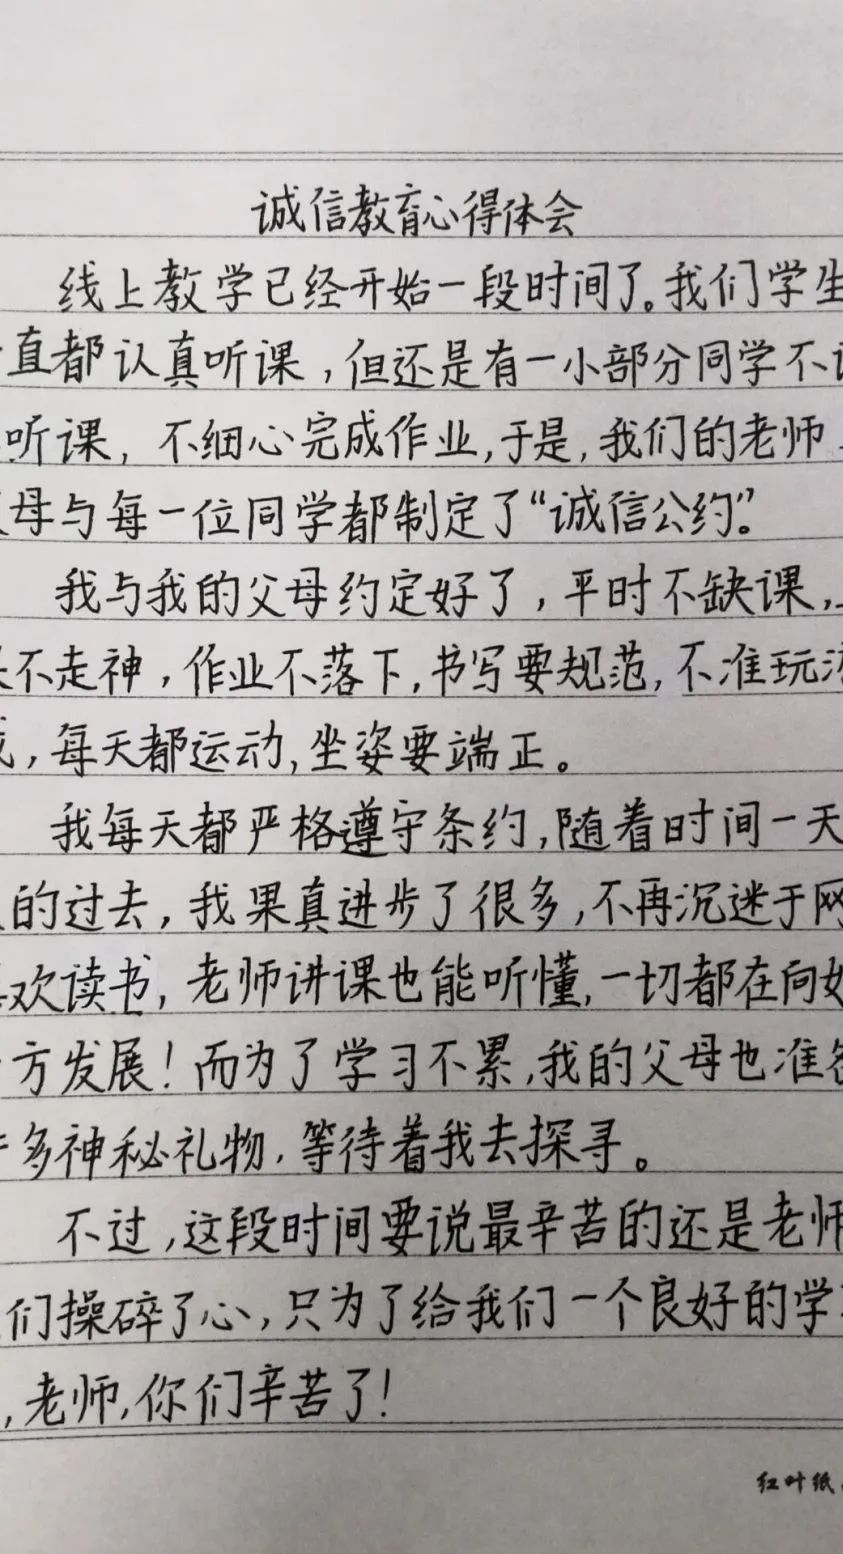 诚信教育心得体会
线上教学已经开始一段时间了。我们学生
直都认真听课，但还是有一小部分同学不
听课，不细心完成作业，于是，我们的老师
母与每一位同学都制定了“诚信公约”。
我与我的父母约定好了，平时不缺课，
不走神，作业不落下，书写要规范，不准玩游
，每天都运动，坐姿要端正。
我每天都严格遵守条约，随着时间一天
的过去，我果真进步了很多，不再沉迷于网
欢读书，老师讲课也能听懂，一切都在向好
方发展！而为了学习不累，我的父母也准备
多神秘礼物，等待着我去探寻。
不过，这段时间要说最辛苦的还是老师
们操碎了心，只为了给我们一个良好的学
，老师，你们辛苦了！
红叶纸